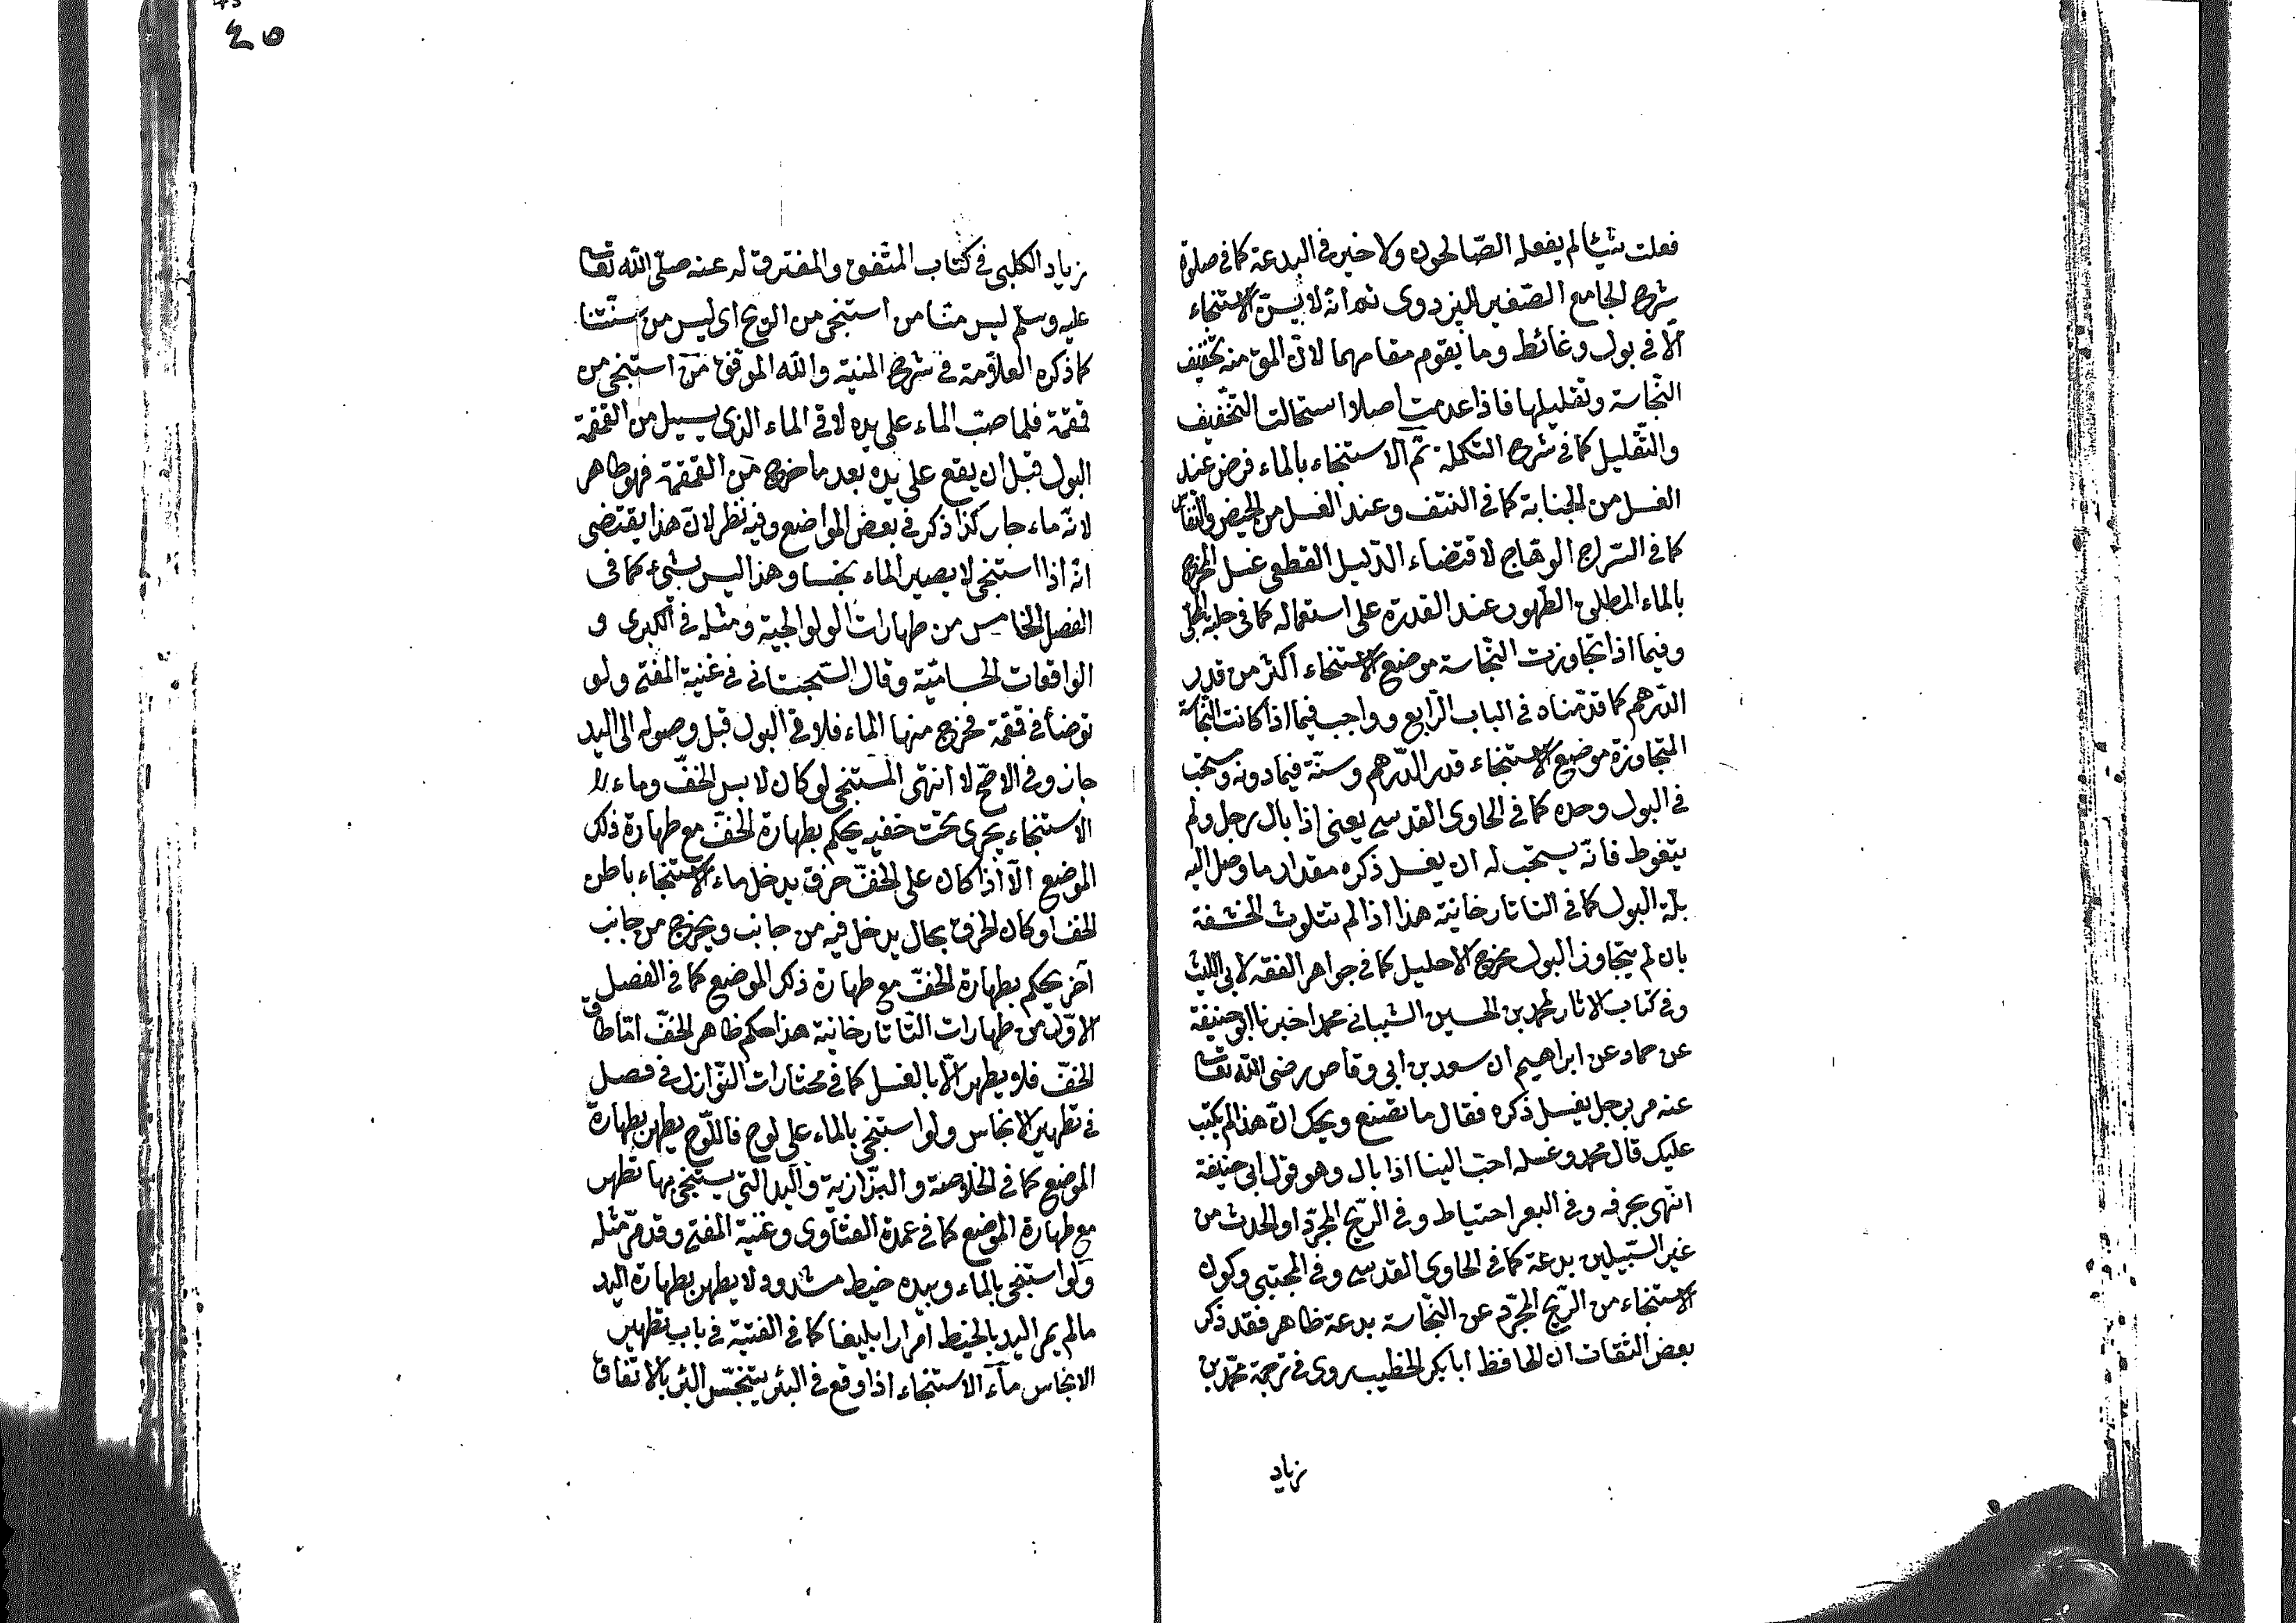 فعلت شيئا لم يفعله الصّالحون ولا خير في البدعة كما في صلوة
شرح الجامع الصّغير للبزدوى ثم انّه لا يسنّ الاستنجاء
الّا في بول وغائط وما يقوم مقامهما لانّ المق منه تخفيف
النّجاسة وتقليلها فاذا عدمت اصلا استحالت التّخفيف
والتّقليل كما في شرح التكملة ثمّ الاستنجاء بالماء فرض عند
الغسل من الجنابة كما في النتف وعند الغسل من الحيض والنّفاس
كما في السّراج الوهّاج لاقتضاء الدّليل القطعى غسل المخرج
بالماء المطلق الطّهور عند القدرة على استعماله كما في حلبة المحلى
وفيما اذا تجاوزت النّجاسة موضع الاستنجاء اكثر من قدر
الدّرهم كما قدّمناه في الباب الرّابع وواجب فيما اذا كانت النّجاسة
المتجاوزة موضع الاستنجاء قدر الدّرهم وسنّة فيما دونه ومستحب
في البول وحده كما في الحاوى القدسي يعنى اذا بال رجل ولم
يتغوط فانّه يستحب له ان يغسل ذكره مقدار ما وصل اليه
بلّة البول كما في التاتارخانية هذا اذا لم تتلوث الحشفة
بان لم يتجاوز البول مخرج الاحليل كما في جواهر الفقه لابى اللّيث
وفي كتاب الاثار لمحمد بن الحسين الشيبانى محمد اخبرنا ابو حنيفة
عن حماد عن ابراهيم ان سعد بن ابى وقاص رضى اللّه تعالى
عنه مر برجل يغسل ذكره فقال ما تصنع ويحك انّ هذا لم يكتب
عليك قال محمد وغسله احبّ الينا اذا بال وهو قول ابى حنيفة
انتهى بحرفه وفي البعر احتياط وفي الرّيح المجرّد او الحدث من
غير السّبيلين بدعة كما في الحاوى القدسي وفي المجتبى وكون
الاستنجاء من الرّيح المجرّد عن النّجاسة بدعة ظاهر فقد ذكر
بعض الثقات ان الحافظ ابا بكر الخطيب روى في ترجمة محمّد بن
زياد
٤٥
زياد الكلبى في كتاب المتّفق والمفترق له عنه صلّى اللّه تعالى
عليه وسلّم ليس منّا من استنجى من الريح اى ليس من سنّتنا
كما ذكره العلّامة في شرح المنية واللّه الموفّق من استنجى من
قمقمة فلما صبّ الماء على يده لاقى الماء الذى يسيل من القمقمة
البول قبل ان يقع على يده بعد ما خرج من القمقمة فهو طاهر
لانّه ماء جار كذا ذكر في بعض المواضع وفيه نظر لانّ هذا يقتضى
انّه اذا استنجى لا يصير الماء نجسا وهذا ليس بشئ كما في
الفصل الخامس من طهارات الولوالجية ومثله في الكبرى و
الواقعات الحساميّة وقال السّجستانى في غنية المفتى ولو
توضأ في قمقمة فخرج منها الماء فلاقى البول قبل وصوله الى اليد
جاز وفي الاصحّ لا انتهى المستنجى لو كان لابس الخفّ وماء
الاستنجاء يجرى تحت خفيه يحكم بطهارة الخفّ مع طهارة ذلك
الموضع الّا اذا كان على الخفّ خرق يدخل ماء الاستنجاء باطن
الخف او كان الخرق بحال يدخل فيه من جانب ويخرج من جانب
آخر يحكم بطهارة الخفّ مع طهارة ذلك الموضع كما في الفصل
الاوّل من طهارات التّاتارخانية هذا حكم ظاهر الخفّ امّا طاق
الخفّ فلا يطهر الّا بالغسل كما في مختارات النّوازل في فصل
في تطهير الانجاس ولو استنجى بالماء على لوح فاللّوح يطهر بطهارة
الموضع كما في الخلاصة والبزّازية واليد التى يستنجى بها تطهر
مع طهارة الموضع كما في عمدة الفتاوى وغنية المفتى وقد مرّ مثله
ولو استنجى بالماء وبيده خيط مشدود لا يطهر بطهارة اليد
ما لم يمر اليد بالخيط امرارا بليغا كما في القنية في باب تطهير
الانجاس ماء الاستنجاء اذا وقع في البئر يتنجّس البئر بالاتّفاق